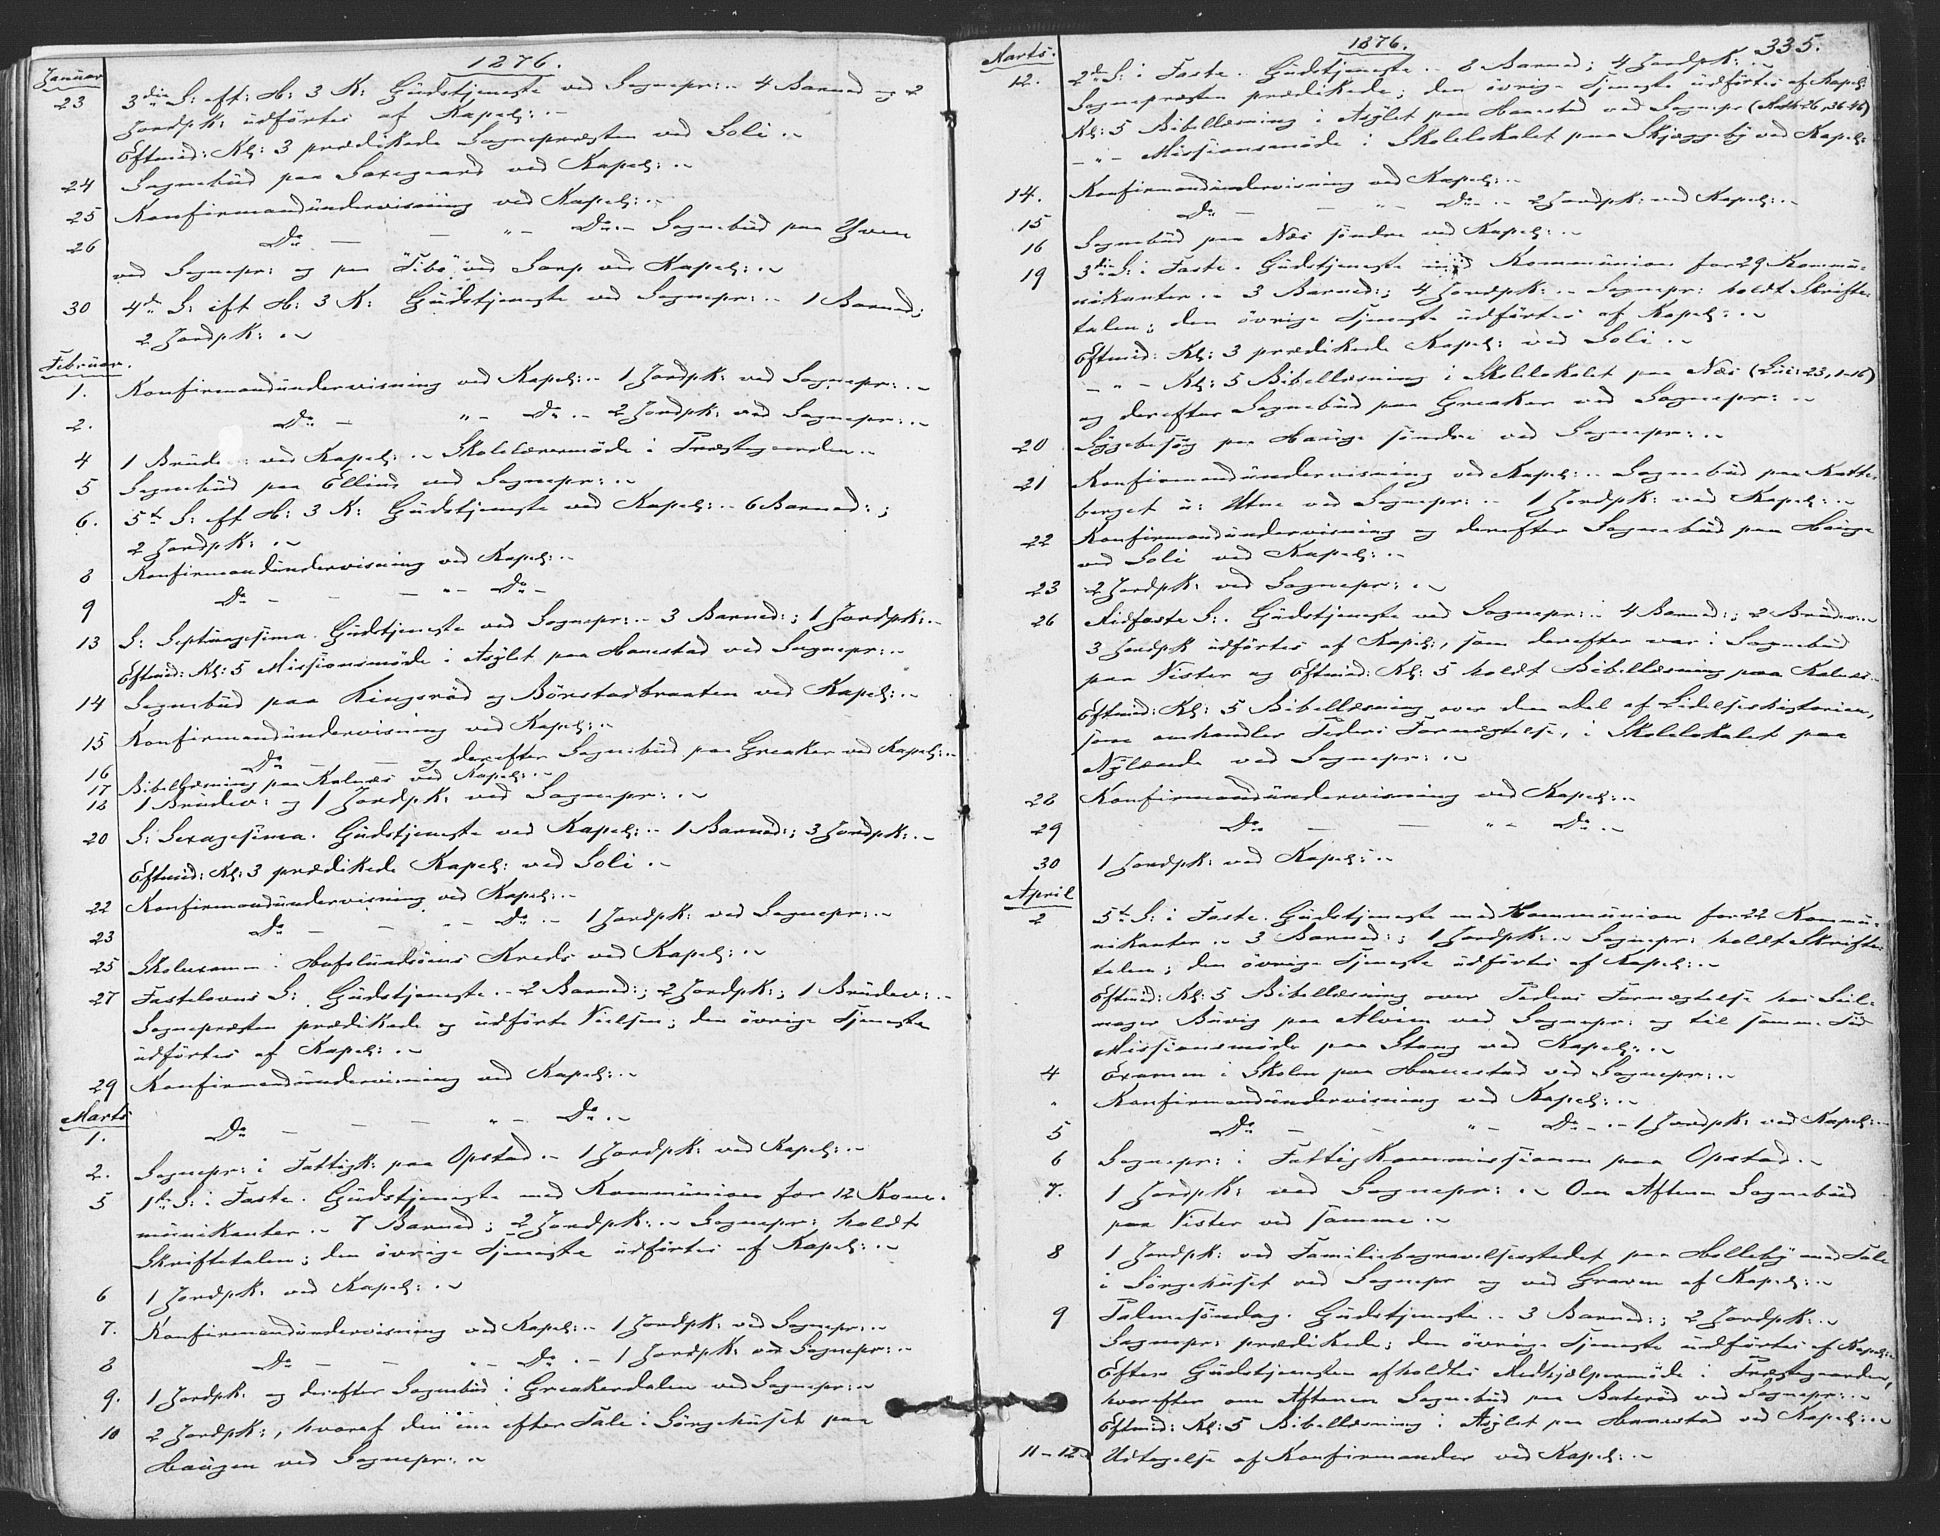 1876.
Januar
23 3die S: eft: H: 3 K: Gudstjeneste ved Sognepr: .. 4 Barned og 2
Jordpk: udførtes af Kapel: ..
Eftmid: Kl: 3 prædikede Sognepræsten ved Soli ..
24 Sognebud paa ved Kapel: ..
25 Konfirmandundervisning ved Kapel: ..
26 Do — — " - Do .. Sognebud paa Hven
ved Sognepr: og paa "Tibo" ved Sarp ved Kapel: ..
30 4de S: eft H: 3 K: Gudstjeneste ved Sognepr: .. 1 Barned;
2 Jordpk: ..
Februar.
1. Konfirmandundervisning ved Kapel: .. 1 Jordpk: ved Sognepr: ..
2. Do — " - Do .. 2 Jordpk: ved Sognepr: ..
4 1 Brude ved Kapel: .. Skolelærermøde i Præstegaarden ..
5 Sognebud paa Ellind ved Sognepr: ..
6. 5te S: eft H: 3 K: Gudstjeneste ved Kapel: .. 6 Barned: ;
2 Jordpk: ..
8 Konfirmandundervisning ved Kapel: ..
9 Do — — — " - Do -
13 S: Septuagesima. Gudstjeneste ved Sognepr: .. 3 Barned: ; 1 Jordpk: ..
Eftmid: Kl: 5 Missionsmøde i Asylet paa Hanestad ved Sognepr: ..
14 Sognebud paa Kingsrød og Børstadbraaten ved Kapel: ..
15 Konfirmandundervisning ved Kapel: ..
16 Do — — og derefter Sognebud paa Greaker ved Kapel: ..
17 Bibellæsning paa Kalnæs ved Kapel: ..
18 1 Brudev: og 1 Jordpk: ved Sognepr: ..
20 S: Sexagesima. Gudstjeneste ved Kapel: .. 1 Barned: ; 3 Jordpk: ..
Eftmid: Kl: 3 prædikede Kapel: ved Soli ..
22 Konfirmandundervisning ved Kapel: ..
23 Do — — " - Do .. 1 Jordpk: ved Sognepr: ..
25 Skoleexamen i Hafslundsøens Kreds ved Kapel: ..
27 Fastelavns S: Gudstjeneste .. 2 Barned: ; 2 Jordpk: ; 1 Brudev: ..
Sognepræsten prædikede og udførte Vielsen; den øvrige Tjeneste
udførtes af Kapel: ..
29 Konfirmandundervisning ved Kapel: ..
Marts
1. Do — — — " - Do ..
2. Sognepr: i Fattigk: paa Opstad .. 1 Jordpk: ved Kapel: ..
5 1ste S: i Faste. Gudstjeneste med Kommunion for 12 Kom-
munikanter .. 7 Barned; 2 Jordpk: .. Sognepr: holdt
Skriftetalen; den øvrige Tjeneste udførtes af Kapel: ..
6 1 Jordpk: ved Kapel: ..
7. Konfirmandundervisning ved Kapel: .. 1 Jordpk: ved Sognepr: ..
8 Do — — " - Do .. 1 Jordpk: ved Sognepr: ..
9. 1 Jordpk: og derefter Sognebud i Greakerdalen ved Sognepr: ..
10 2 Jordpk: , hvoraf den ene efter Tale i Sørgehuset paa
Haugen ved Sognepr: ..
1876. 335.
Marts.
12. 2den S: i Faste. Gudstjeneste .. 8 Barned; 4 Jordpk: ..
Sognepræsten prædikede; den øvrige Tjeneste udførtes af Kapel:
Kl: 5 Bibellæsning i Asylet paa Hanestad ved Sognepr (Math 26, 36-46)
- " - Missionsmøde i Skolelokalet paa Skjæggeby ved Kapel:
14. Konfirmandundervisning ved Kapel: ..
15 Do — — " - Do .. 2 Jordpk: ved Kapel: ..
16 Sognebud paa Næs søndre ved Kapel: ..
19 3die S: i Faste. Gudstjeneste med Kommunion for 29 Kommu-
nikanter .. 3 Barned: ; 4 Jordpk: .. Sognepr: holdt Skrifte-
talen; den øvrige Tjeneste udførtes af Kapel: ..
Eftmid: Kl: 3 prædikede Kapel: ved Soli ..
- " - Kl: 5 Bibellæsning i Skolelokalet paa Næs (Luc: 23, 1-16)
og derefter Sognebud paa Greaker ved Sognepr: ..
20 Sygebesøg paa Hauge søndre ved Sognepr: ..
21 Konfirmandundervisning ved Kapel: .. Sognebud paa Katte-
berget u: Utne ved Sognepr: .. 1 Jordpk: ved Kapel: ..
22 Konfirmandundervisning og derefter Sognebud paa Hauge
ved Soli ved Kapel: ..
23 2 Jordpk: ved Sognepr: ..
26 Midfaste S: . Gudstjeneste ved Sognepr: .. 4 Barned: ; 2 Brudev: ..
3 Jordpk udførtes af Kapel: , som derefter var i Sognebud
paa Vister og Eftmid: Kl: 5 holdt Bibellæsning paa Kalnæs ..
Eftmid: Kl: 5 Bibellæsning over den Del af Lidelseshistorien,
som omhandler Peders Fornægtelse, i Skolelokalet paa
Nylænde ved Sognepr: ..
28 Konfirmandundervisning ved Kapel: ..
29 Do — — " - Do ..
30 1 Jordpk: ved Kapel: ..
April
2 5te S: i Faste. Gudstjeneste med Kommunion for 22 Kommu-
nikanter .. 3 Barned: ; 1 Jordpk: .. Sognepr: holdt Skrifte-
talen; den øvrige Tjeneste udførtes af Kapel: ..
Eftmid: Kl: 5 Bibellæsning over Peders Fornægtelse hos Seil-
mager Buvig paa Alvim ved Sognepr: og til samme Tid
Missionsmøde paa Stang ved Kapel: ..
4 Examen i Skolen paa Hanestad ved Sognepr: ..
" Konfirmandundervisning ved Kapel: ..
5 Do — — " - Do .. 1 Jordpk: ved Kapel: ..
6 Sognepr: i Fattigkommissionen paa Opstad ..
7. 1 Jordpk: ved Sognepr: .. Om Aftenen Sognebud
paa Vister ved samme ..
8 1 Jordpk: ved Familiebegravelsesstedet paa Holleby med Tale
i Sørgehuset ved Sognepr og ved Graven af Kapel: ..
9 Palmesøndag. Gudstjeneste .. 3 Barned: ; 2 Jordpk: ..
Sognepr: prædikede; den øvrige Tjeneste udførtes af Kapel: ..
Efter Gudstjenesten afholdtes Medhjælpermøde i Præstegaarden,
hvorefter om Aftenen Sognebud paa Baterød ved Sognepr: ..
Eftmid: Kl: 5 Bibellæsning i Asylet paa Hanestad ved Kapel: ..
11-12 Udtagelse af Konfirmander ved Kapel: ..